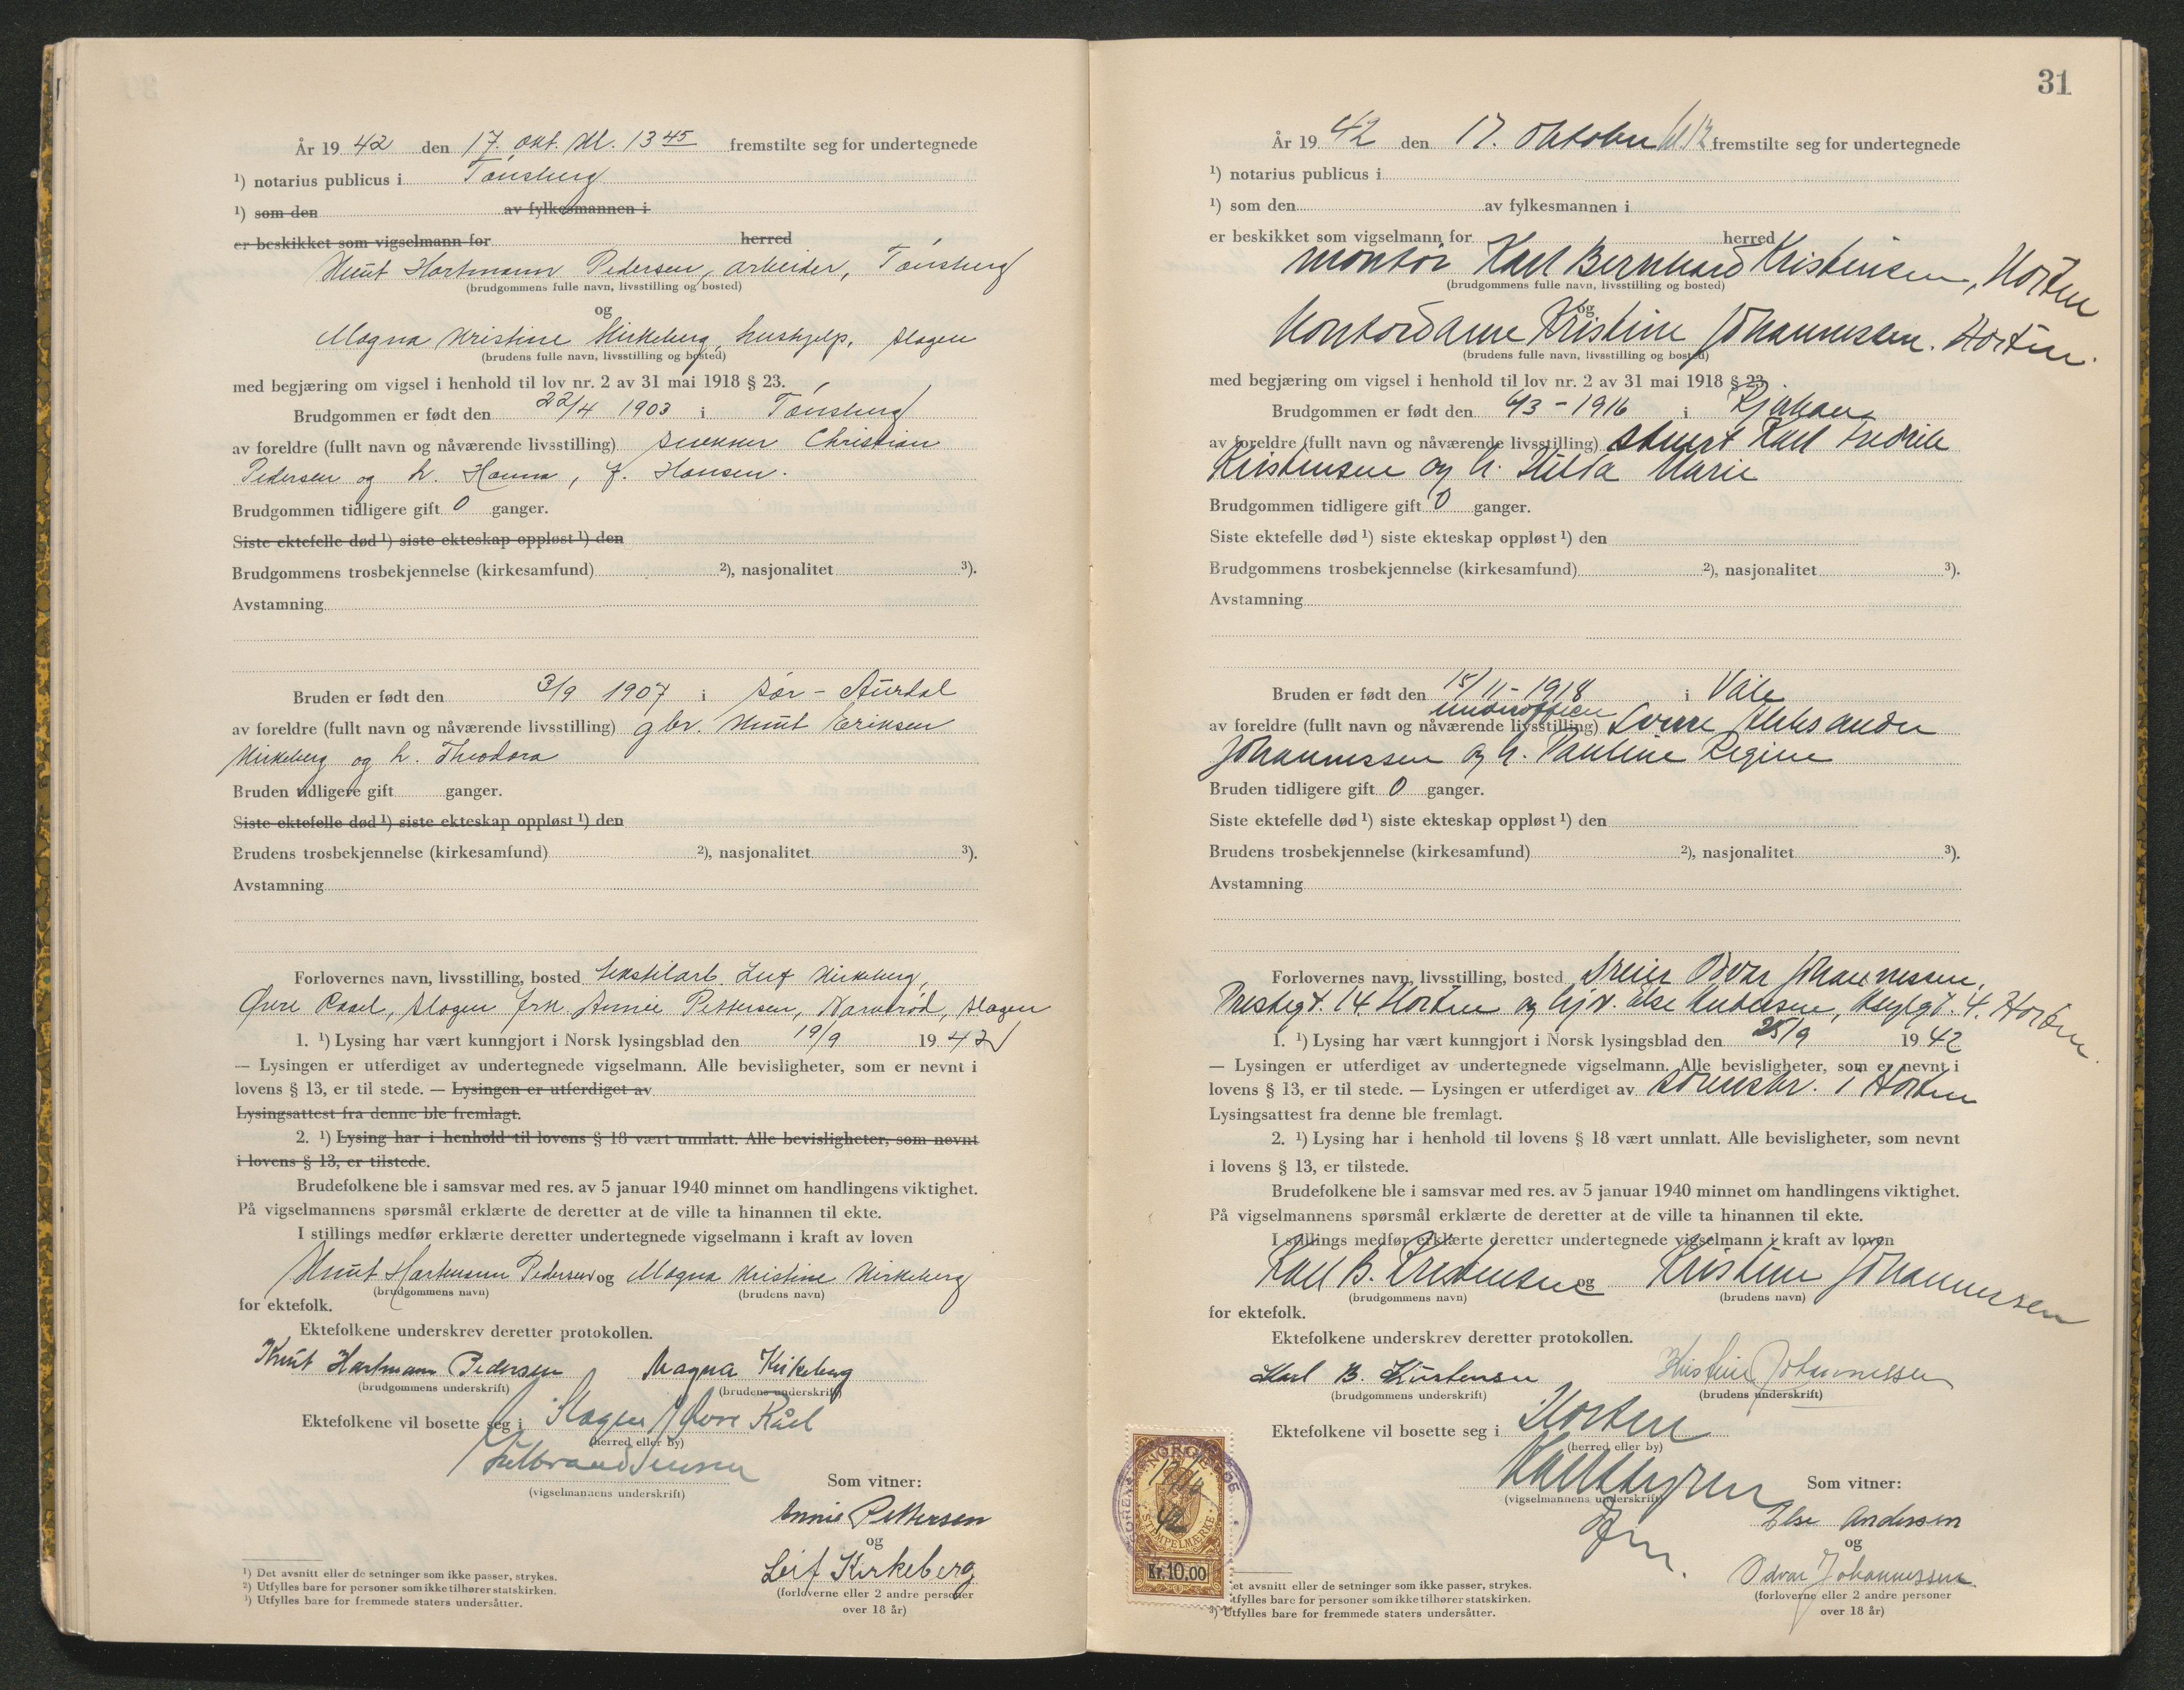 År 19 42 den 17. okt. kl. 13 45 fremstilte seg for undertegnede
¹) notarius publicus i Tønsberg
¹) som den av fylkesmannen i
er beskikket som vigselmann for herred
Knut Hartmann Pedersen, arbeider, Tønsberg
(brudgommens fulle navn, livsstilling og bosted)
og
Magna Kristine Kirkeberg, hushjelp, Slagen
(brudens fulle navn, livsstilling og bosted)
med begjæring om vigsel i henhold til lov nr. 2 av 31 mai 1918 § 23.
Brudgommen er født den 22/4 1903 i Tønsberg
av foreldre (fullt navn og nåværende livsstilling) snekker Christian
Pedersen og h. Hanna, f. Hansen.
Brudgommen tidligere gift 0 ganger.
Siste ektefelle død ¹) siste ekteskap oppløst ¹) den
Brudgommens trosbekjennelse (kirkesamfund) ²), nasjonalitet ³).
Avstamning
Bruden er født den 3/9 1907 i Sør-Aurdal
av foreldre (fullt navn og nåværende livsstilling) gbr. Knut Eriksen
Kirkeberg og h. Theodora
Bruden tidligere gift ganger.
Siste ektefelle død ¹) siste ekteskap oppløst ¹) den
Brudens trosbekjennelse (kirkesamfund) ²), nasjonalitet ³).
Avstamning
Forlovernes navn, livsstilling, bosted tekstilarb. Leif Kirkeberg,
Øvre Råel, Slagen frk. Annie Pettersen, Narverød, Slagen
1. ¹) Lysing har vært kunngjort i Norsk lysingsblad den 19/9 19 42
— Lysingen er utferdiget av undertegnede vigselmann. Alle bevisligheter, som er nevnt i
lovens § 13, er til stede. — Lysingen er utferdiget av
Lysingsattest fra denne ble fremlagt.
2. ¹) Lysing har i henhold til lovens § 18 vært unnlatt. Alle bevisligheter, som nevnt
i lovens § 13, er tilstede.
Brudefolkene ble i samsvar med res. av 5 januar 1940 minnet om handlingens viktighet.
På vigselmannens spørsmål erklærte de deretter at de ville ta hinannen til ekte.
I stillings medfør erklærte deretter undertegnede vigselmann i kraft av loven
Knut Hartmann Pedersen og Magna Kristine Kirkeberg
(brudgommens navn) (brudens navn)
for ektefolk.
Ektefolkene underskrev deretter protokollen.
Knut Hartmann Pedersen Magna Kirkeberg
(brudgommens underskrift) (brudens underskrift)
Ektefolkene vil bosette seg i Slagen Øvre Råel
(herred eller by)
(vigselmannens underskrift)
Som vitner:
Annie Pettersen
og
Leif Kirkeberg
(forloverne eller 2 andre personer
over 18 år)
¹) Det avsnitt eller de setninger som ikke passer, strykes.
²) Utfylles bare for personer som ikke tilhører statskirken.
³) Utfylles bare for fremmede staters undersåtter.
31
År 19 42 den 17. Oktober kl. 12 fremstilte seg for undertegnede
¹) notarius publicus i
¹) som den av fylkesmannen i
er beskikket som vigselmann for herred
montør Karl Bernhard Kristensen, Horten
(brudgommens fulle navn, livsstilling og bosted)
og
Kontordame Kristine Johannessen. Horten.
(brudens fulle navn, livsstilling og bosted)
med begjæring om vigsel i henhold til lov nr. 2 av 31 mai 1918 § 23.
Brudgommen er født den 6/3 - 1916 i Rjukan
av foreldre (fullt navn og nåværende livsstilling) stuert Karl Fredrik
Kristensen og h. Hilda Marie
Brudgommen tidligere gift 0 ganger.
Siste ektefelle død ¹) siste ekteskap oppløst ¹) den
Brudgommens trosbekjennelse (kirkesamfund) ²), nasjonalitet ³).
Avstamning
Bruden er født den 15/11 - 1918 i Våle
underoffiser
av foreldre (fullt navn og nåværende livsstilling) Sverre Aleksander
Johannessen og h. Pauline Regine
Bruden tidligere gift 0 ganger.
Siste ektefelle død ¹) siste ekteskap oppløst ¹) den
Brudens trosbekjennelse (kirkesamfund) ²), nasjonalitet ³).
Avstamning
Forlovernes navn, livsstilling, bosted dreier Odvar Johannessen,
Prestegt. 14 Horten og hjv. Else Andersen, 4. Horten.
1. ¹) Lysing har vært kunngjort i Norsk lysingsblad den 25/9 19 42
— Lysingen er utferdiget av undertegnede vigselmann. Alle bevisligheter, som er nevnt i
lovens § 13, er til stede. — Lysingen er utferdiget av sorenskr. i Horten
Lysingsattest fra denne ble fremlagt.
2. ¹) Lysing har i henhold til lovens § 18 vært unnlatt. Alle bevisligheter, som nevnt
i lovens § 13, er tilstede.
Brudefolkene ble i samsvar med res. av 5 januar 1940 minnet om handlingens viktighet.
På vigselmannens spørsmål erklærte de deretter at de ville ta hinannen til ekte.
I stillings medfør erklærte deretter undertegnede vigselmann i kraft av loven
Karl B. Kristensen og Kristine Johannessen
(brudgommens navn) (brudens navn)
for ektefolk.
Ektefolkene underskrev deretter protokollen.
Karl B. Kristensen Kristine Johannessen
(brudgommens underskrift) (brudens underskrift)
Ektefolkene vil bosette seg i Horten
(herred eller by)
(vigselmannens underskrift)
Som vitner:
Else Andersen
og
Odvar Johannessen
(forloverne eller 2 andre personer
over 18 år)
NORGE
17/10
42
STEMPELMÆRKE
Kr. 10.00
et avsnitt eller de setninger som ikke passer, strykes.
tfylles bare for personer som ikke tilhører statskirken.
³) Utfylles bare for fremmede staters undersåtter.